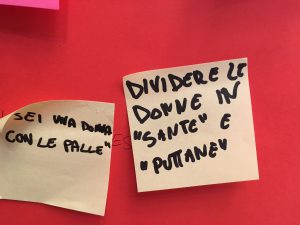 SEI UNA DONNA
CON LE PALLE"
DIVIDERE LE
DONNE IN
"SANTE" E
"PUTTANE"